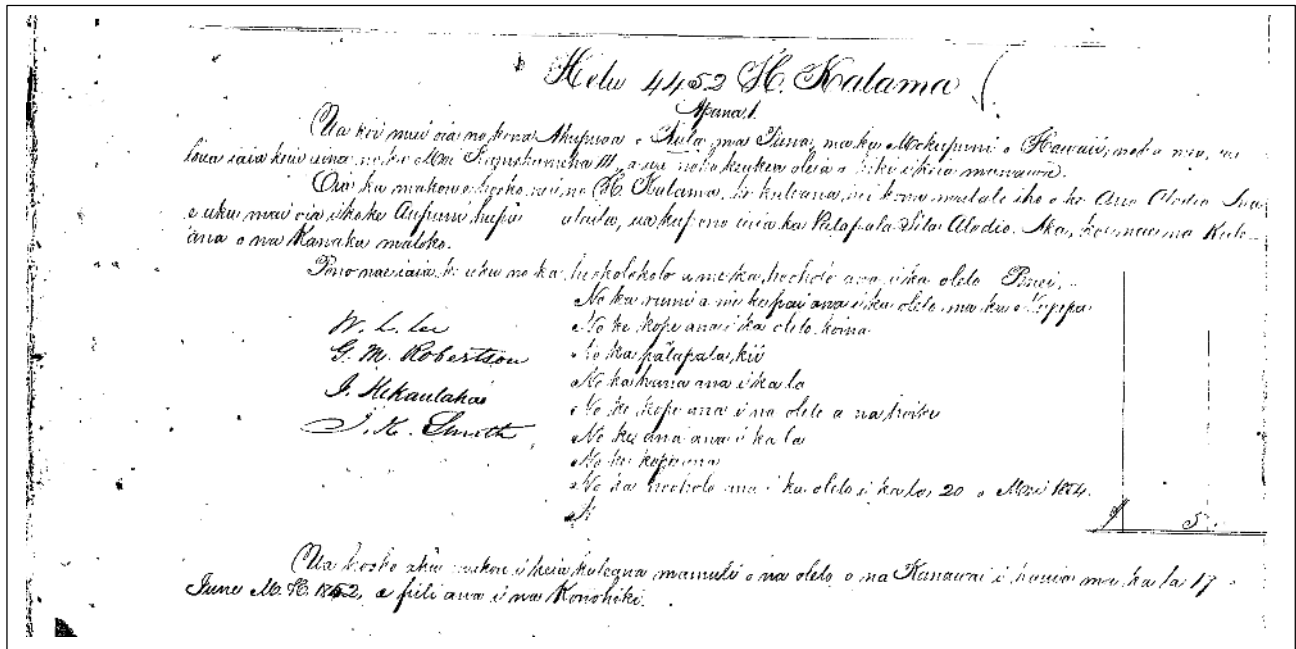 Helu 4452 H. Kalama
Apana 1.
Ua kii mai oia no kona Ahupuaa o Kula, ma Puna, ma ka Mokupuni o Hawaii; no ka mea, ua
loaa iaia keia aina no ka Moi Kamehameha III, a ua noho keakea oleia a hiki i keia manawa.
Oia ka makou e hooko nei no H. Kalama, ke kuleana, nei kona malalo iho o ke Ano Alodio. Ina
e uku mai oia i ko ke Aupuni hapa alaila, ua kupono iaia ka Palapala Sila Alodio. Aka, koe nae na Kule-
ana o na Kanaka maloko.
Pono nae iaia, ke uku no ka hookolokolo a me ka hooholo ana i ka olelo Penei,
No ka rumi a me ke pai ana i ka olelo ma ka Nupepa
W. L. Lee No ke kope ana i ka olelo hoina
G. M. Robertson No ka palapala kii
J. Kekaulahao No ka hana ana i ka la
J. H. Smith No ke kope ana i na olelo a na hoike
No ke ana ana i ka la
No ke kope ana
No ka hooholo ana i ka olelo i ka la, 20 o Mei 1854.
5
Ua hooko aku makou i keia kuleana mamuli o na olelo o na Kanawai i hanaia ma ka la 17 o
June M. H. 1852, e pili ana i na Konohiki.